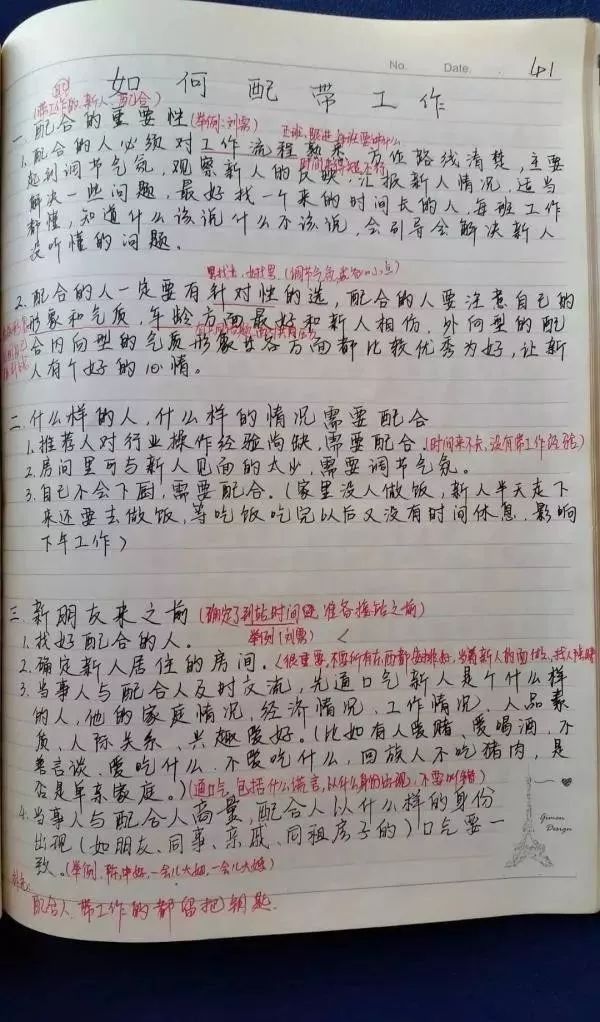 No. Date. 41
如何配带工作
(带工作的、新人、配合)
一、配合的重要性(举例:刘票)
1.配合的人必须对工作流程熟悉,方位路线清楚,主要
起到调节气氛,观察新人的反映,汇报新人情况,适当
解决一些问题,最好找一个来的时间长的人,每班工作
都懂,知道什么该说什么不该说,会引导会解决新人
没听懂的问题。
2.配合的人一定要有针对性的选,配合的人要注意自己的
形象和气质,年龄方面最好和新人相仿,外向型的配
合内向型的气质形象各方面都比较优秀为好,让新
人有个好的心情。
二、什么样的人,什么样的情况需要配合
1.推荐人对行业操作经验尚缺,需要配合。(时间来不长,没有带工作经验)
2.房间里可与新人见面的太少,需要调节气氛。
3.自己不会下厨,需要配合。(家里没人做饭,新人半天走下
来还要去做饭,等吃饭吃完以后又没有时间休息,影响
下午工作)
三、新朋友来之前(确定了到站时间 准备接站之前)
1.找好配合的人。 举例(刘票)
2.确定新人居住的房间。(很重要,不要所有东西都安排好,当着新人的面
3.当事人与配合人及时交流,先通口气新人是个什么样
的人,他的家庭情况、经济情况、工作情况、人品素
质、人际关系、兴趣爱好。(比如有人爱赌、爱喝酒,不
善言谈、爱吃什么、不爱吃什么,回族人不吃猪肉,是
否是单亲家庭。)(通口气,包括什么谎言,以什么身份出现,不要叫错)
4.当事人与配合人商量,配合人以什么样的身份
出现(如朋友、同事、亲戚、同租房子的)口气要一
致。(举例:陈 一会儿大姐,一会儿大嫂)
配合人、带工作的都留把钥匙.
Gimon
Design